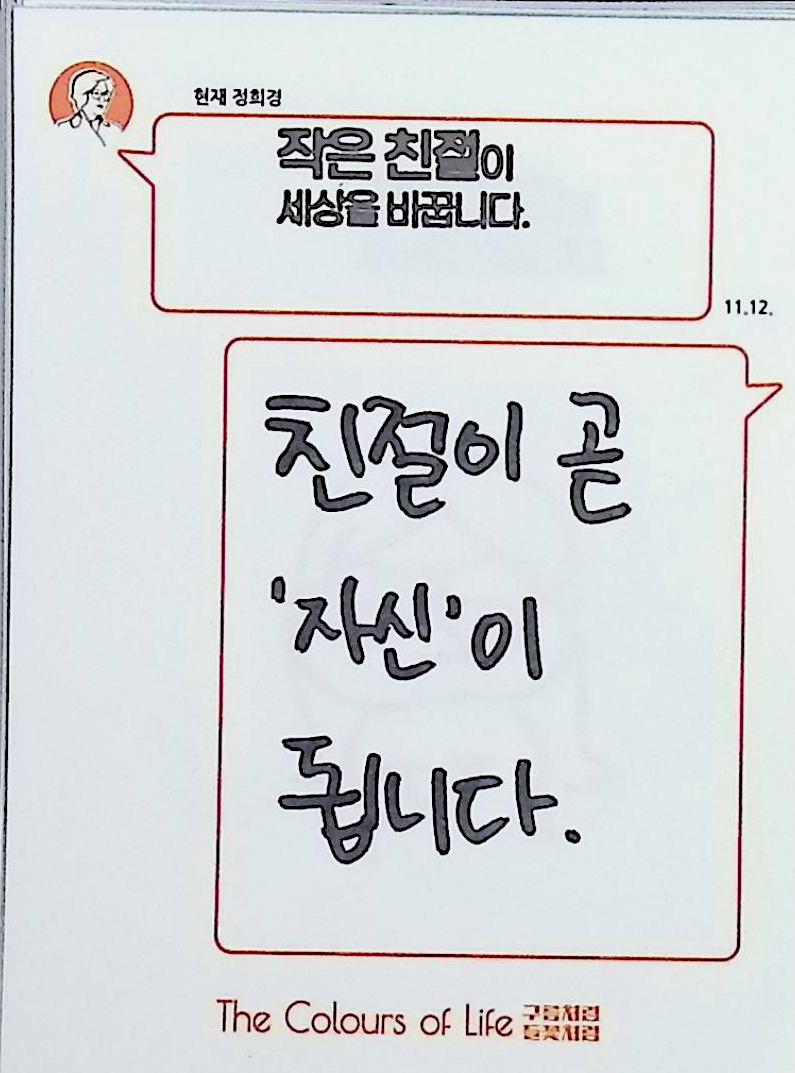 현재 정희경
작은 친절이
세상을 바꿉니다.
11.12.
친절이 곧
'자신'이
됩니다.
The Colours of Life 구름처럼
들꽃처럼